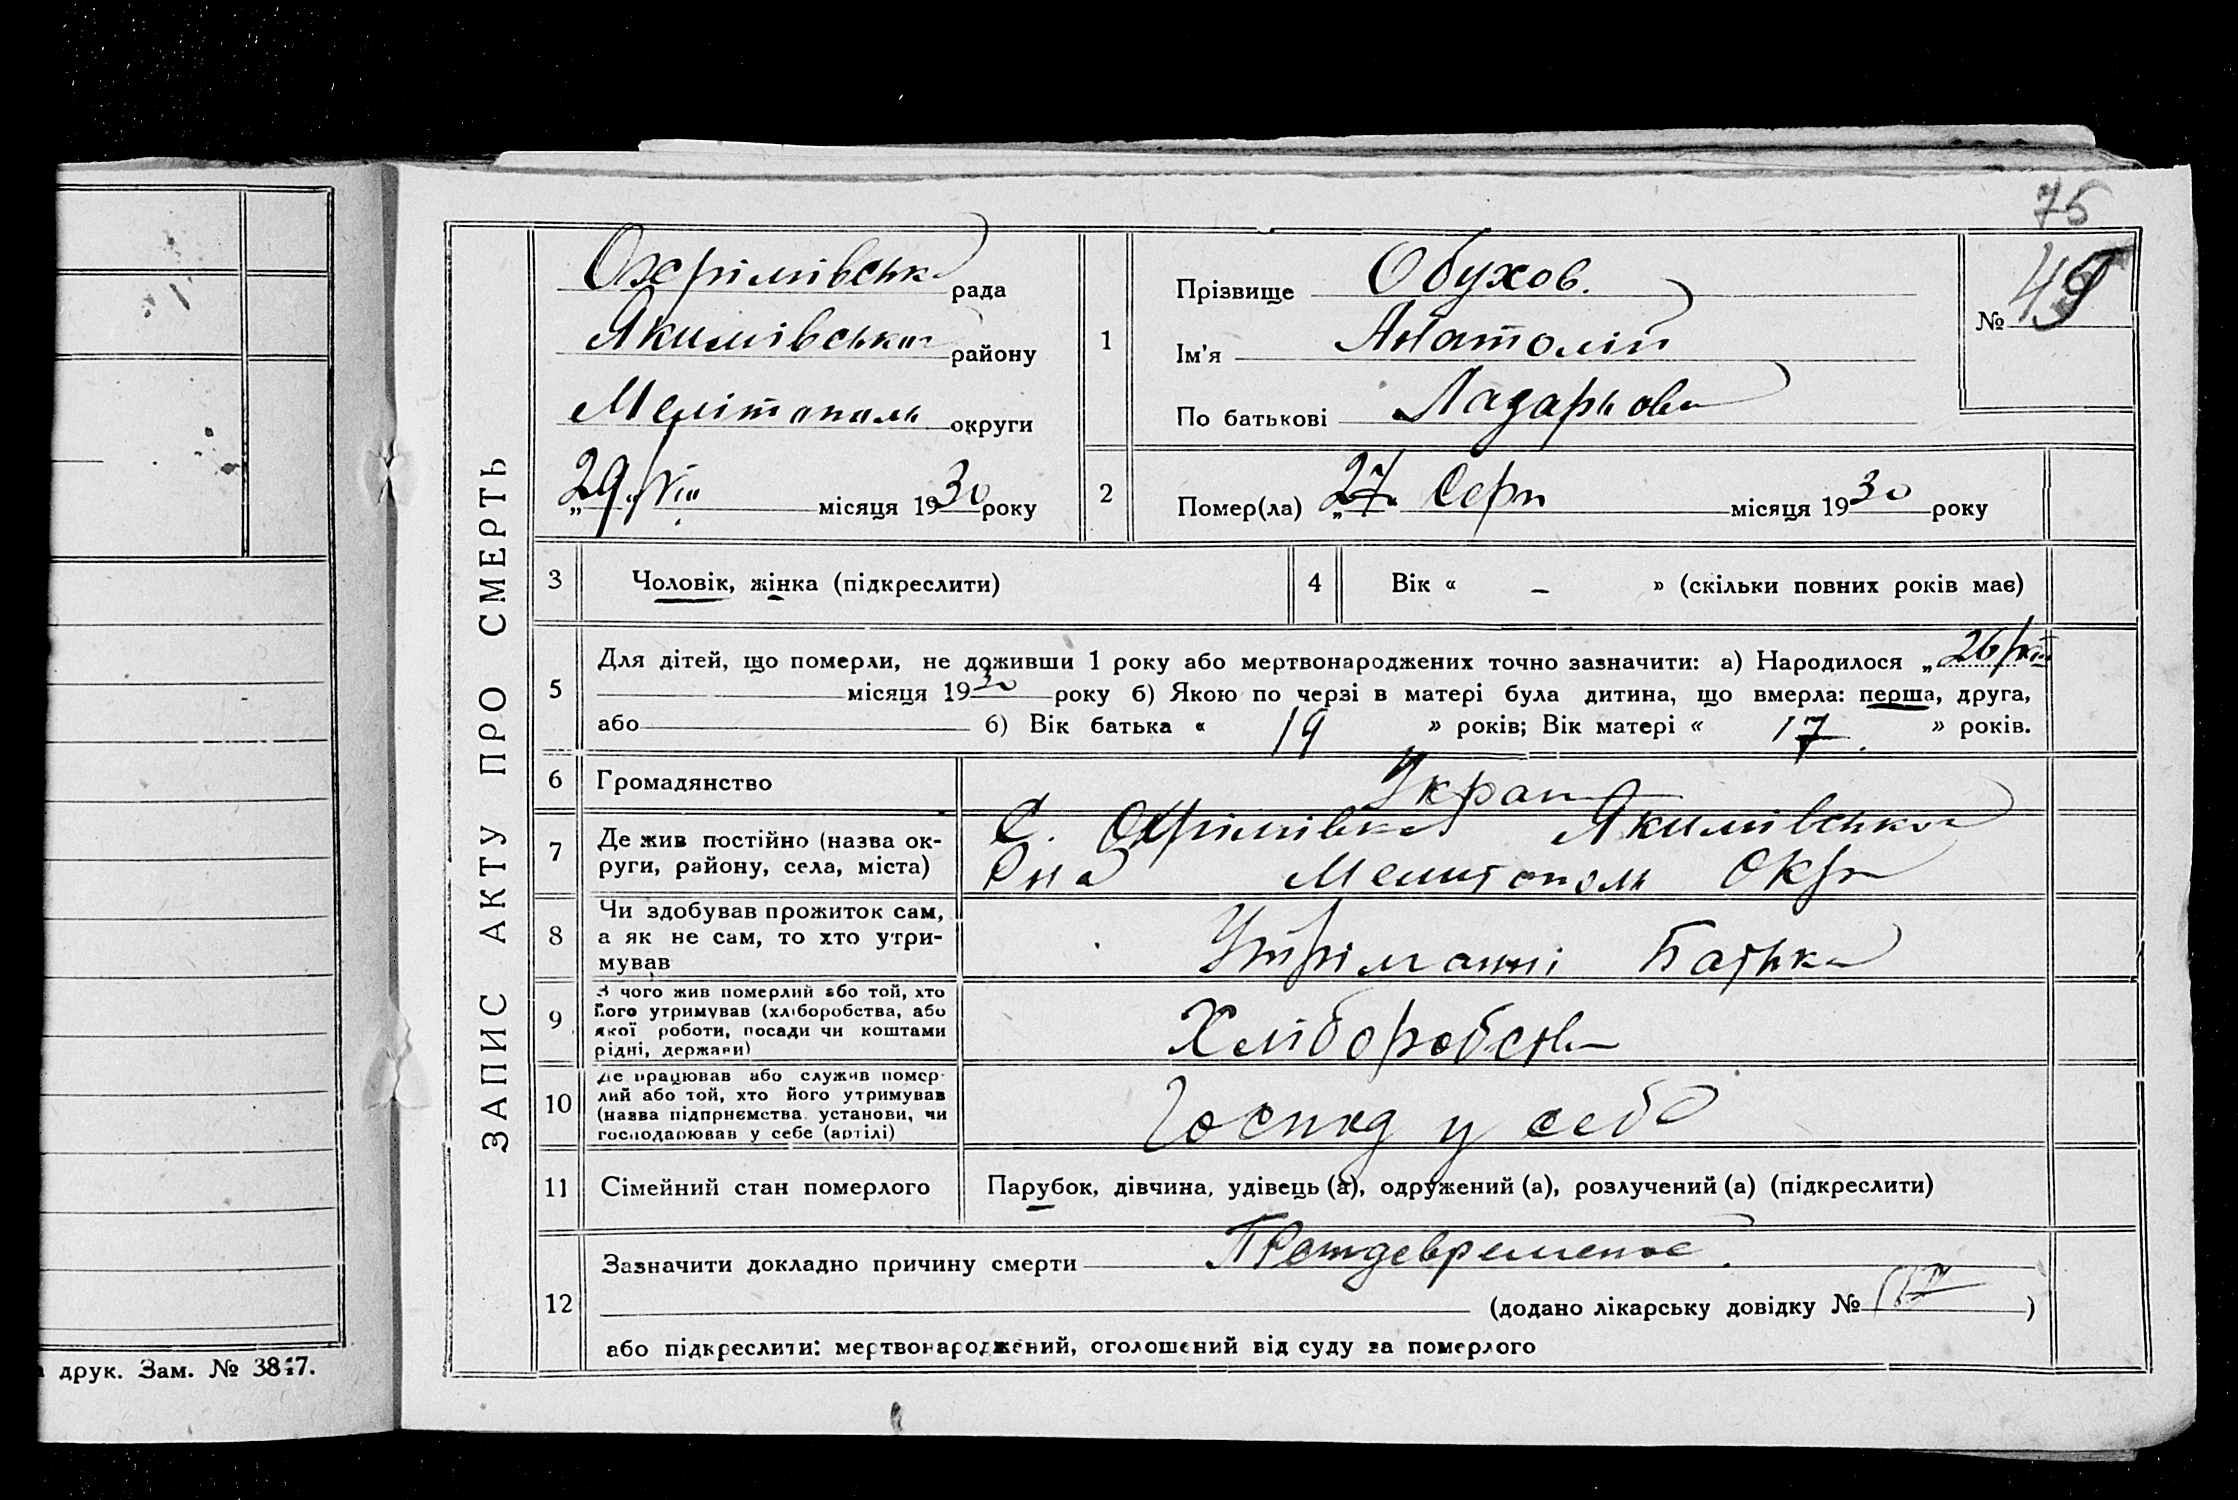 75
ЗАПИС АКТУ ПРО СМЕРТЬ
Охрімівська рада
Якимівськаго району
Мелітополь округи
„29“ VIII місяця 1930 року
1
Прізвище Обухов.
Ім'я Анатолій
По батькові Лазарьов
№ 49
2
Помер(ла) „27“ Серп місяця 1930 року
3 Чоловік, жінка (підкреслити)
4 Вік « – » (скільки повних років має)
5
Для дітей, що померли, не доживши 1 року або мертвонароджених точно зазначити: а) Народилося „26/VIII
місяця 1930 року б) Якою по черзі в матері була дитина, що вмерла: перша, друга,
або б) Вік батька « 19 » років; Вік матері « 17 » років.
6 Громадянство Укран
7 Де жив постійно (назва ок-
руги, району, села, міста)
С. Охрімівка Якимівського
Рна Мелитополь Окр
8 Чи здобував прожиток сам,
а як не сам, то хто утри-
мував
Утріманні Батька
9 З чого жив померлий або той, хто
його утримував (хліборобства, або
якої роботи, посади чи коштами
рідні, держави)
Хліборобств
10 Де працював або служив помер-
лий або той, хто його утримував
(назва підприємства, установи, чи
господарював у себе (артілі)
Господ у себе
11 Сімейний стан померлого Парубок, дівчина, удівець (а), одружений (а), розлучений (а) (підкреслити)
12
Зазначити докладно причину смерти
(додано лікарську довідку № )
або підкреслити: мертвонароджений, оголошений від суду за померлого
друк. Зам. № 3847.